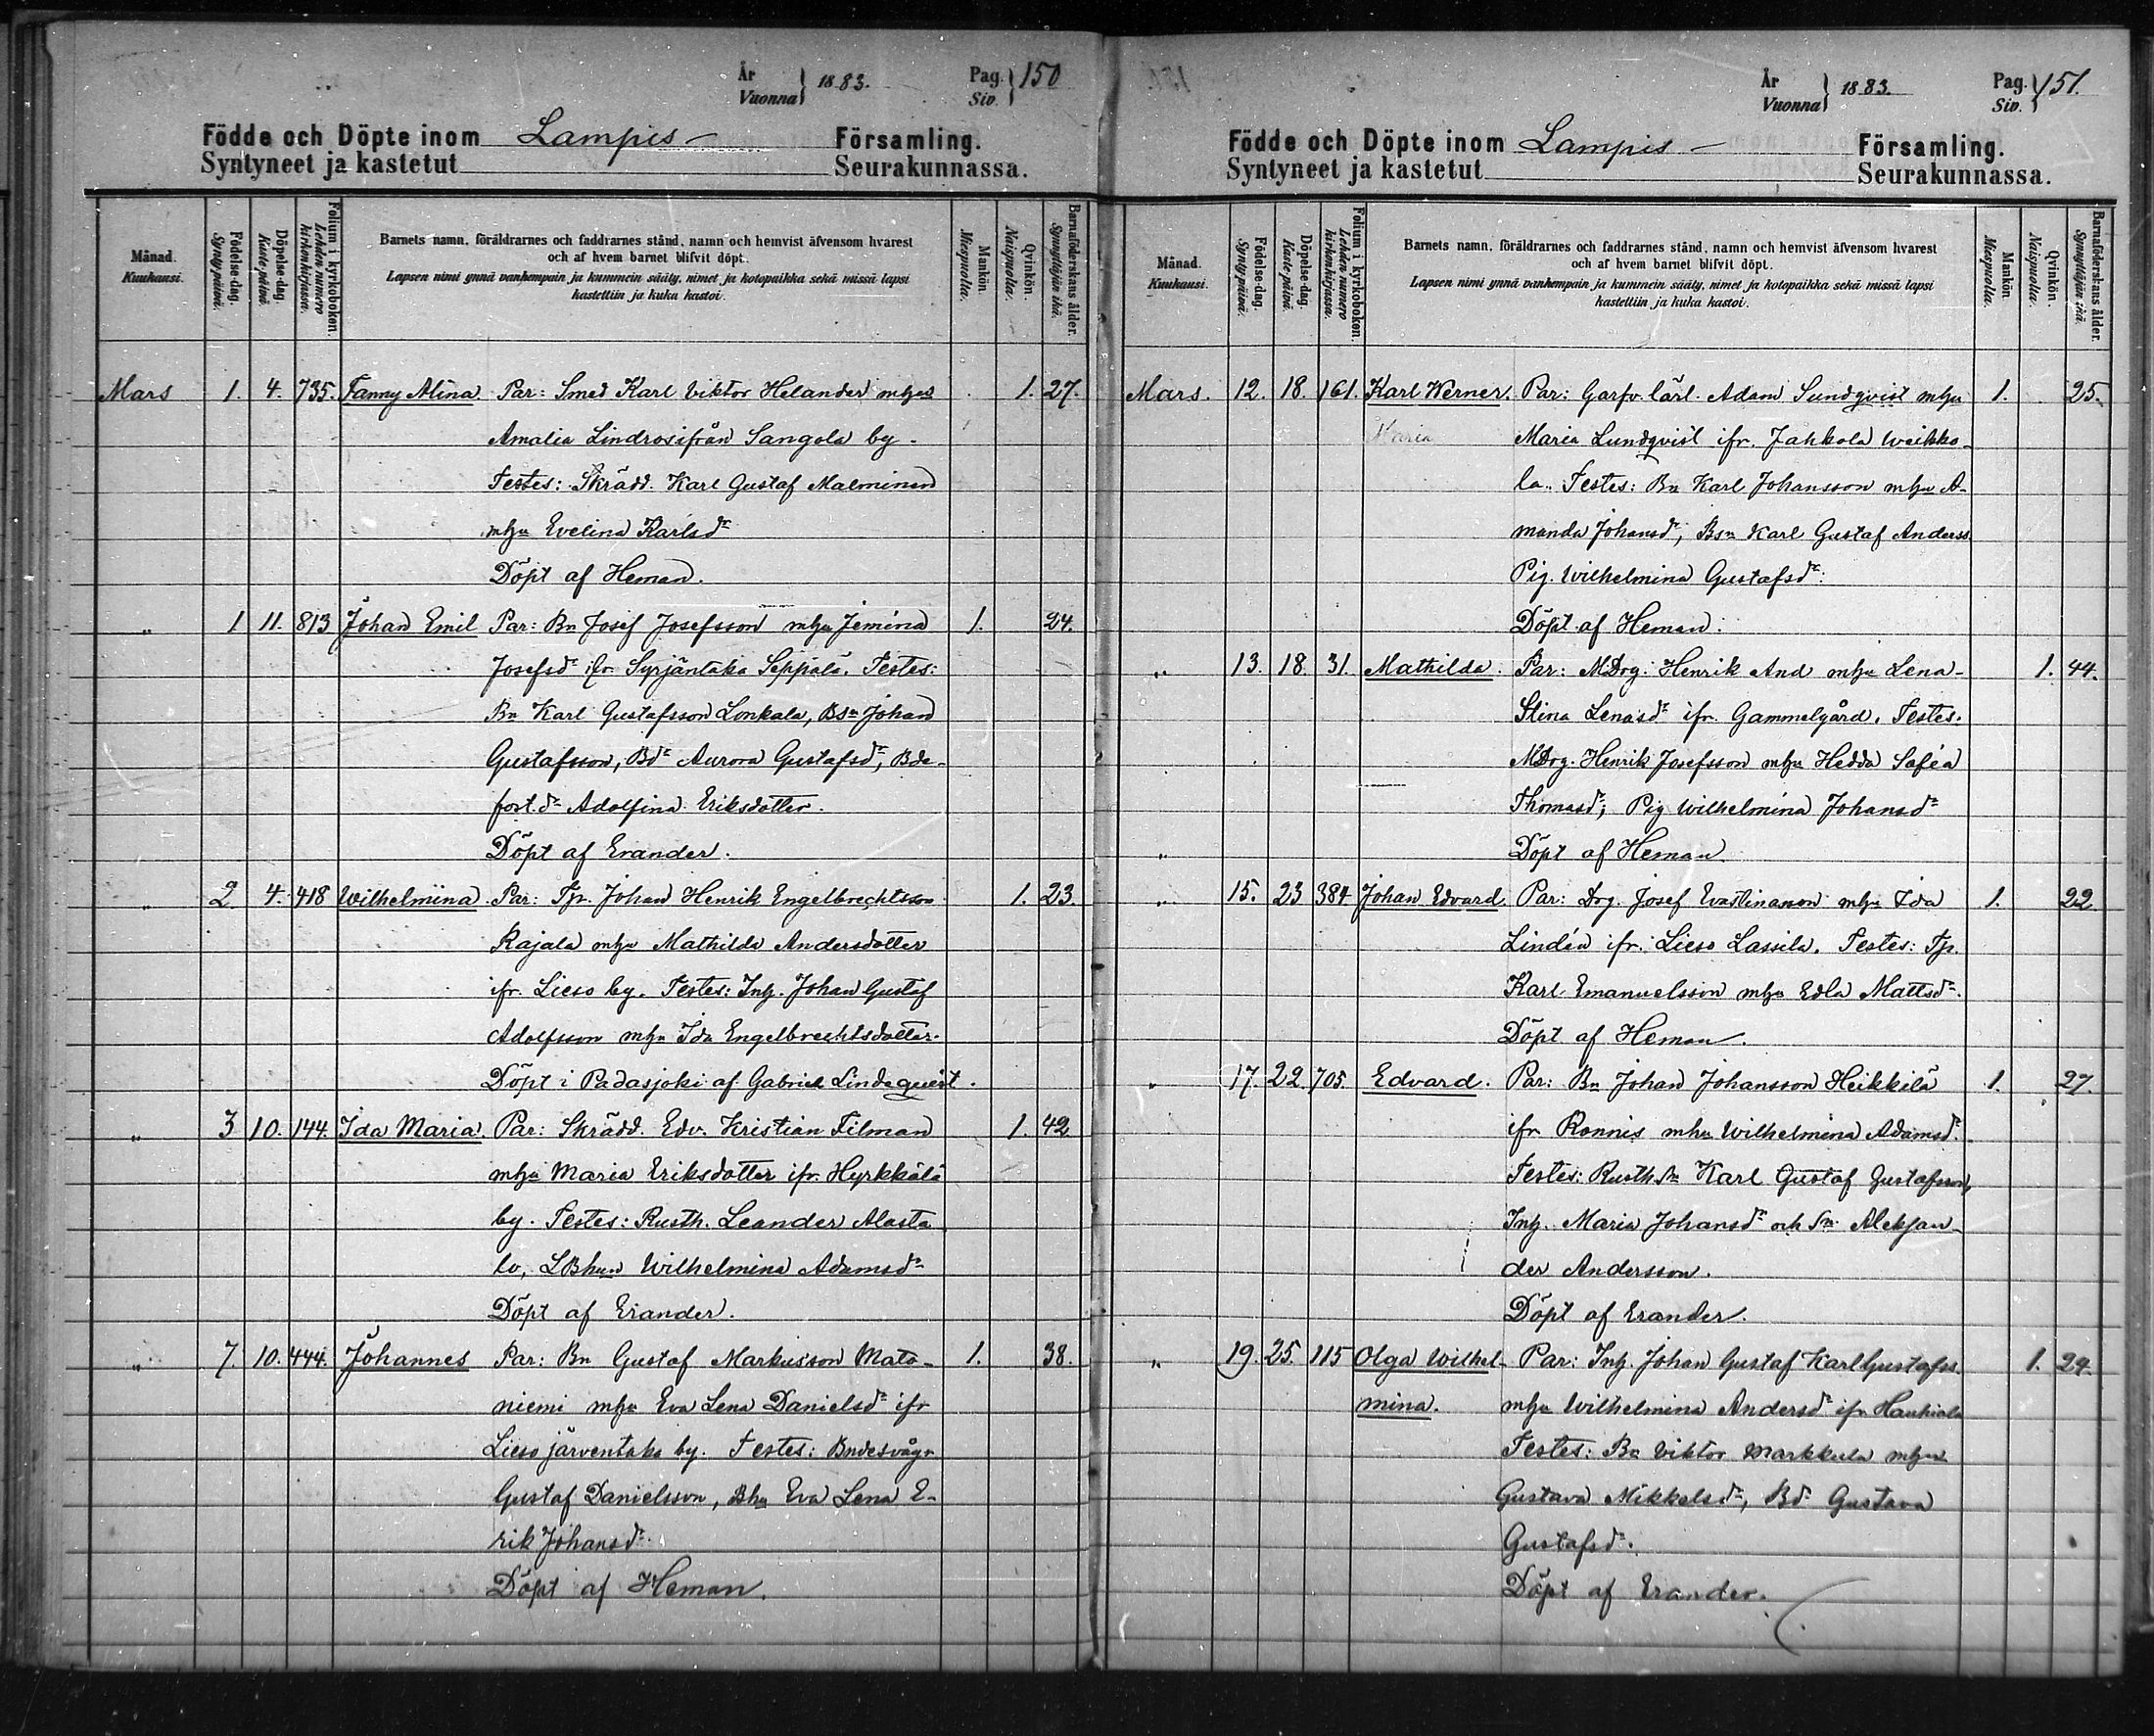 År
Vuonna } 1883.
Pag.
Siv. } 150
Födde och Döpte inom Lampis Församling.
Syntyneet ja kastetut Seurakunnassa.
Månad. Kuukausi.
Födelse-dag. Syntypäivä.
Döpelse-dag. Kaste-päivä.
Folium i kyrkoboken. Lehden numero kirkonkirjassa.
Barnets namn, föräldrarnes och faddrarnes stånd, namn och hemvist äfvensom hvarest
och af hvem barnet blifvit döpt.
Lapsen nimi ynnä vanhempain ja kummein sääty, nimet ja kotopaikka sekä missä lapsi
kastettiin ja kuka kastoi.
Mankön. Miespuolia.
Qvinkön. Naispuolia.
Barnaföderskans ålder. Synnyttäjän ikä.
Mars 1. 4. 735. Fanny Alina Par: Smed Karl Viktor Helander mhus 1. 27.
Amalia Lindros ifrån Sangola by.
Testes: Skrädd. Karl Gustaf Malminen
mhu Evelina Karlsdr
Döpt af Heman.
" 1 11. 813 Johan Emil Par: Bn Josef Josefsson mhu Jemina 1. 24.
Josefsdr ifr Syrjäntaka Seppälä. Testes:
Bn Karl Gustafsson Lonkala, Bsn Johan
Gustafsson, Bdr Aurora Gustafsdr, Bde-
fost.dr Adolfina Eriksdotter.
Döpt af Erander.
" 2 4. 418 Wilhelmiina Par: Tp. Johan Henrik Engelbrechtsson 1. 23
Rajala mhu Mathilda Andersdotter
ifr. Lieso by. Testes: Inh. Johan Gustaf
Adolfsson mhu Ida Engelbrechtsdotter.
Döpt i Padasjoki af Gabriel Lindequist.
" 3 10. 144. Ida Maria. Par: Skrädd. Edv. Kristian Tilman 1. 42
mhu Maria Eriksdotter ifr. Hyrkkälä
by. Testes: Rusth. Leander Alasta
lo, LBhun Wilhelmina Adamsdr
Döpt af Erander.
" 7. 10. 444. Johannes Par: Bn Gustaf Markusson Mato- 1. 38.
niemi mhu Eva Lena Danielsdr ifr
Lieso järventaka by. Testes: Bndesvågr
Gustaf Danielsson, Bhu Eva Lena E-
rik Johansdr.
Döpt af Heman.
År
Vuonna } 1883.
Pag.
Siv. } 151.
Födde och Döpte inom Lampis Församling.
Syntyneet ja kastetut Seurakunnassa.
Månad. Kuukausi.
Födelse-dag. Syntypäivä.
Döpelse-dag. Kaste-päivä.
Folium i kyrkoboken. Lehden numero kirkonkirjassa.
Barnets namn, föräldrarnes och faddrarnes stånd, namn och hemvist äfvensom hvarest
och af hvem barnet blifvit döpt.
Lapsen nimi ynnä vanhempain ja kummein sääty, nimet ja kotopaikka sekä missä lapsi
kastettiin ja kuka kastoi.
Mankön. Miespuolia.
Qvinkön. Naispuolia.
Barnaföderskans ålder. Synnyttäjän ikä.
Mars. 12. 18. 161. Karl Werner. Par: Garfv. lärl. Adam Sundqvist mhu 1. 25.
Maria Maria Lundqvist ifr. Jahkola Weikko-
la. Testes: Bn Karl Johansson mhu A-
manda Johansdr, Bsn Karl Gustaf Anderss.
Pig. Wilhelmina Gustafsdr.
Döpt af Heman.
" 13. 18. 31. Mathilda. Par: MDrg. Henrik And mhu Lena- 1. 44.
Stina Lenasdr ifr. Gammelgård. Testes.
MDrg. Henrik Josefsson mhu Hedda Sofia
Thomasdr, Pig Wilhelmina Johansdr
" Döpt af Heman
" 15. 23 384 Johan Edvard. Par: Drg. Josef Evastinasson mhu Ida 1. 22
Lindén ifr. Lieso Lassila. Testes: Tp.
Karl Emanuelsson mhu Edla Mattsdr.
Döpt af Heman.
" 17. 22. 705. Edvard. Par: Bn Johan Johansson Heikkilä 1. 27.
ifr Ronnis mhu Wilhelmina Adamsdr.
Testes: Rusth.sn Karl Gustaf Gustafsson,
Inh. Maria Johansdr och Sn. Aleksan-
der Andersson.
Döpt af Erander.
" 19. 25. 115 Olga Wilhel- Par: Inh. Johan Gustaf Karl Gustafss. 1. 29.
mina. mhu Wilhelmina Andersdr ifr Hauhiala
Testes: Bn Viktor Markkula mhu
Gustava Mikkelsdr, Bdr Gustava
Gustafsdr.
Döpt af Erander.